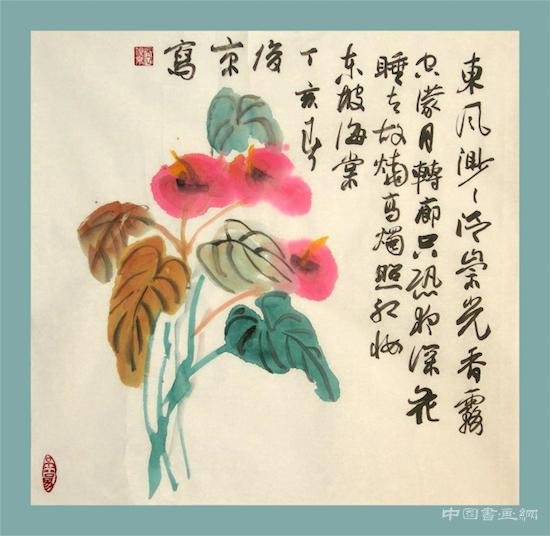 東風渺〻泛崇光香霧
空濛月轉廊只恐夜深花
睡去故燒高燭照紅妝
東坡海棠
丁亥
京寫
中国書画網